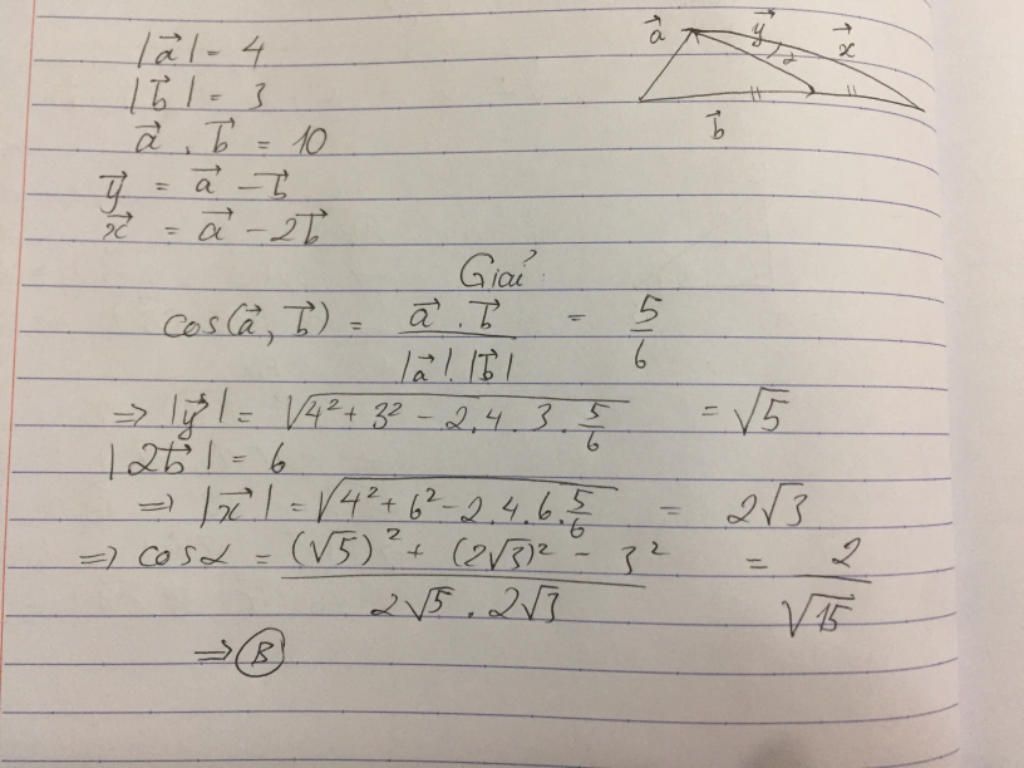 |a⃗| = 4
|b⃗| = 3
a⃗ . b⃗ = 10
y⃗ = a⃗ - b⃗
x⃗ = a⃗ - 2b⃗
a⃗ y⃗ x⃗
α
b⃗
Giải
cos(a⃗, b⃗) = a⃗ . b⃗ / |a⃗|.|b⃗| = 5/6
=> |y⃗| = √(4² + 3² - 2.4.3.5/6) = √5
|2b⃗| = 6
=> |x⃗| = √(4² + 6² - 2.4.6.5/6) = 2√3
=> cosα = (√5)² + (2√3)² - 3² / 2√5 . 2√3 = 2/√15
=> B